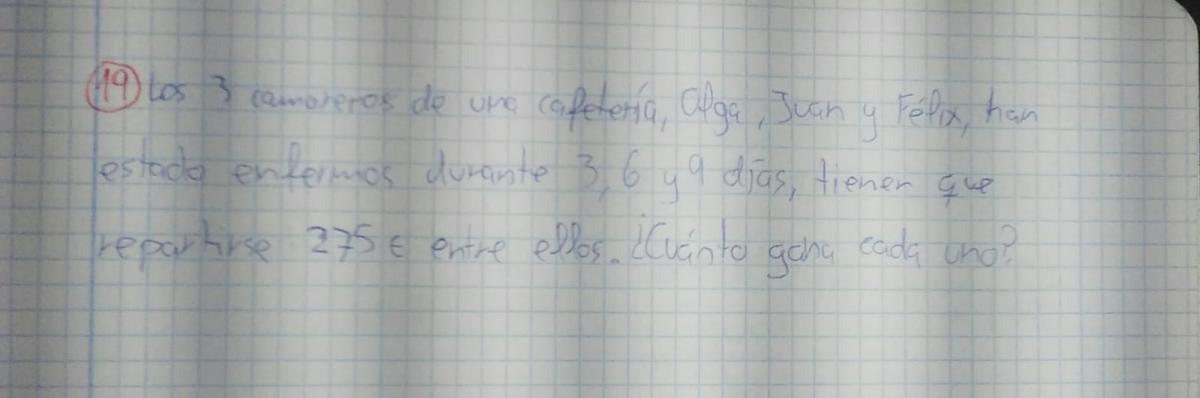 19 Los 3 camareros de una cafetería, Olga, Juan y Félix, han
estado enfermos durante 3, 6 y 9 días, tienen que
repartirse 275 € entre ellos. ¿Cuánto gana cada uno?